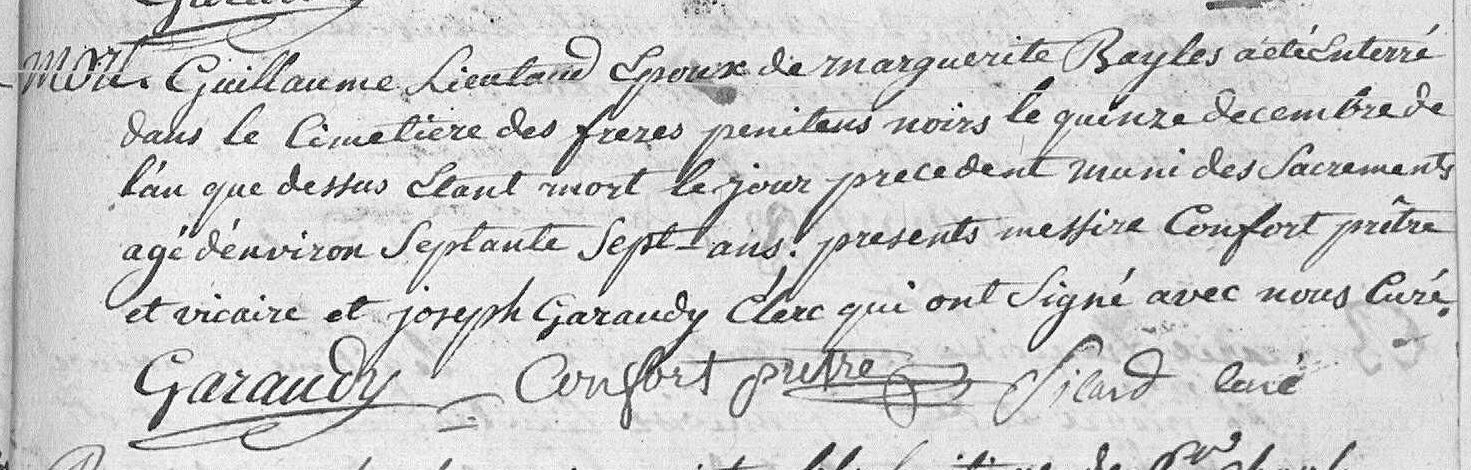 Mort. Guillaume Lieutaud Epoux de marguerite Bayles a été Enterré
dans le Cimetiere des freres penitens noirs le quinze decembre de
l'an que dessus Etant mort le jour precedent muni des Sacrements
agé d'énviron Septante Sept ans. presents messire Confort prêtre
et vicaire et joseph Garaudy Clerc qui ont Signé avec nous Curé.
Garaudy Confort pretre Sicard curé